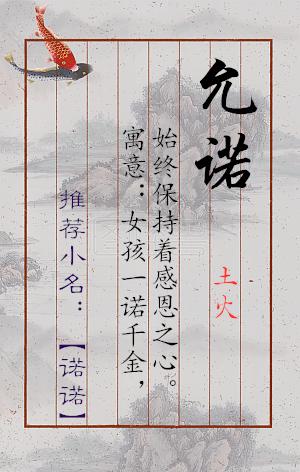 允诺
土火
寓意：女孩一诺千金，
始终保持着感恩之心。
推荐小名：【诺诺】